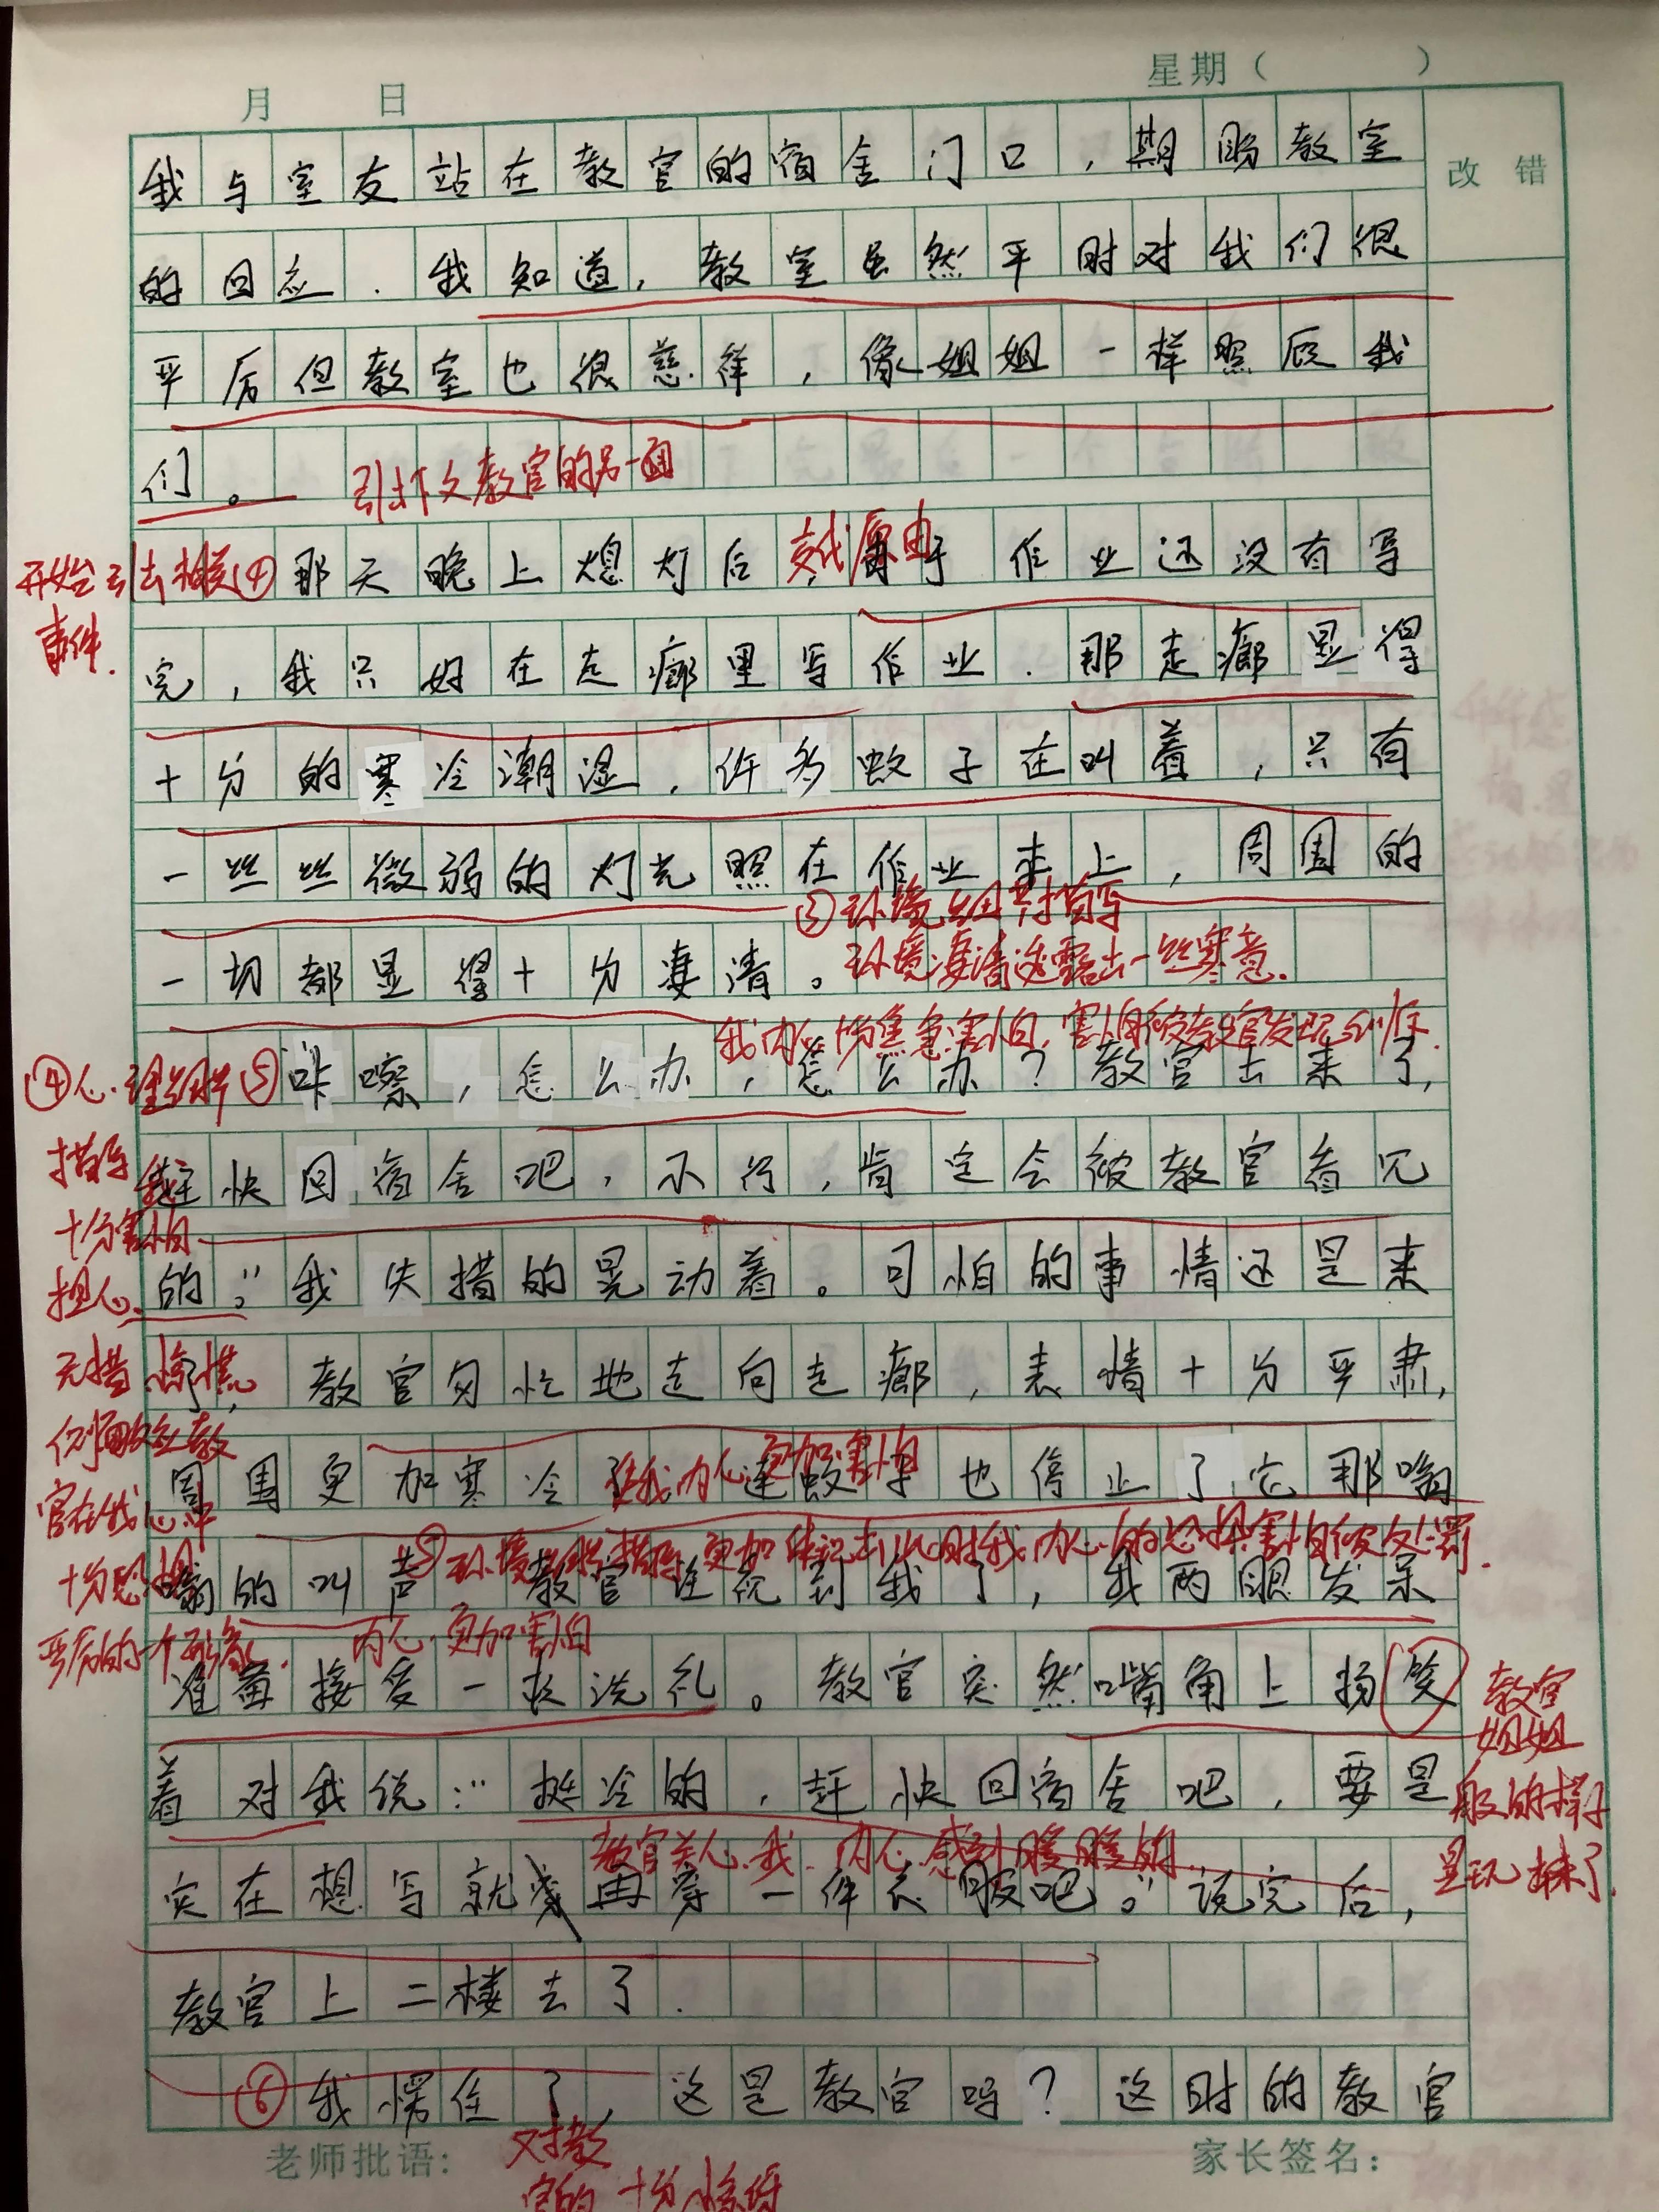 月 日 星期( )
改错
我与室友站在教官的宿舍门口,期盼教室
的回应.我知道,教室虽然平时对我们很
严厉但教室也很慈祥,像姐姐一样照顾我
们。
引出下文教官的另一面
开始引出相关
事件.
④那天晚上熄灯后,由于作业还没有写
交代原由
完,我只好在走廊里写作业.那走廊显得
十分的寒冷潮湿,许多蚊子在叫着,只有
一丝丝微弱的灯光照在作业本上,周围的
③环境细节描写
一切都显得十分凄清。
环境凄清透露出一丝寒意.
我内心十分焦急害怕,害怕被教官发现训斥.
④心理细节
描写
十分害怕
担心.
⑤"咔嚓,怎么办,怎么办?教官出来了,
赶快回宿舍吧,不行,肯定会被教官看见
的。"我失措的晃动着。可怕的事情还是来
无措 惊慌
侧面效应教
官在我心中
十分恐惧
严厉的一个形象.
了,教官匆忙地走向走廊,表情十分严肃,
周围更加寒冷,连蚊子也停止了它那嗡
让我内心更加害怕
嗡的叫声,教官注视到我了,我两眼发呆
⑤环境细节描写更加体现出此时我内心的恐惧害怕被处罚.
内心更加害怕
准备接受一场洗礼。教官突然嘴角上扬笑
教官
姐姐
般的样子
显现出来了.
着对我说:"挺冷的,赶快回宿舍吧,要是
教官关心我.内心感到暖暖的
实在想写就再穿一件衣服吧。"说完后,
教官上二楼去了.
⑥我愣住了,这是教官吗?这时的教官
老师批语: 家长签名:
对教
官的十分惊讶